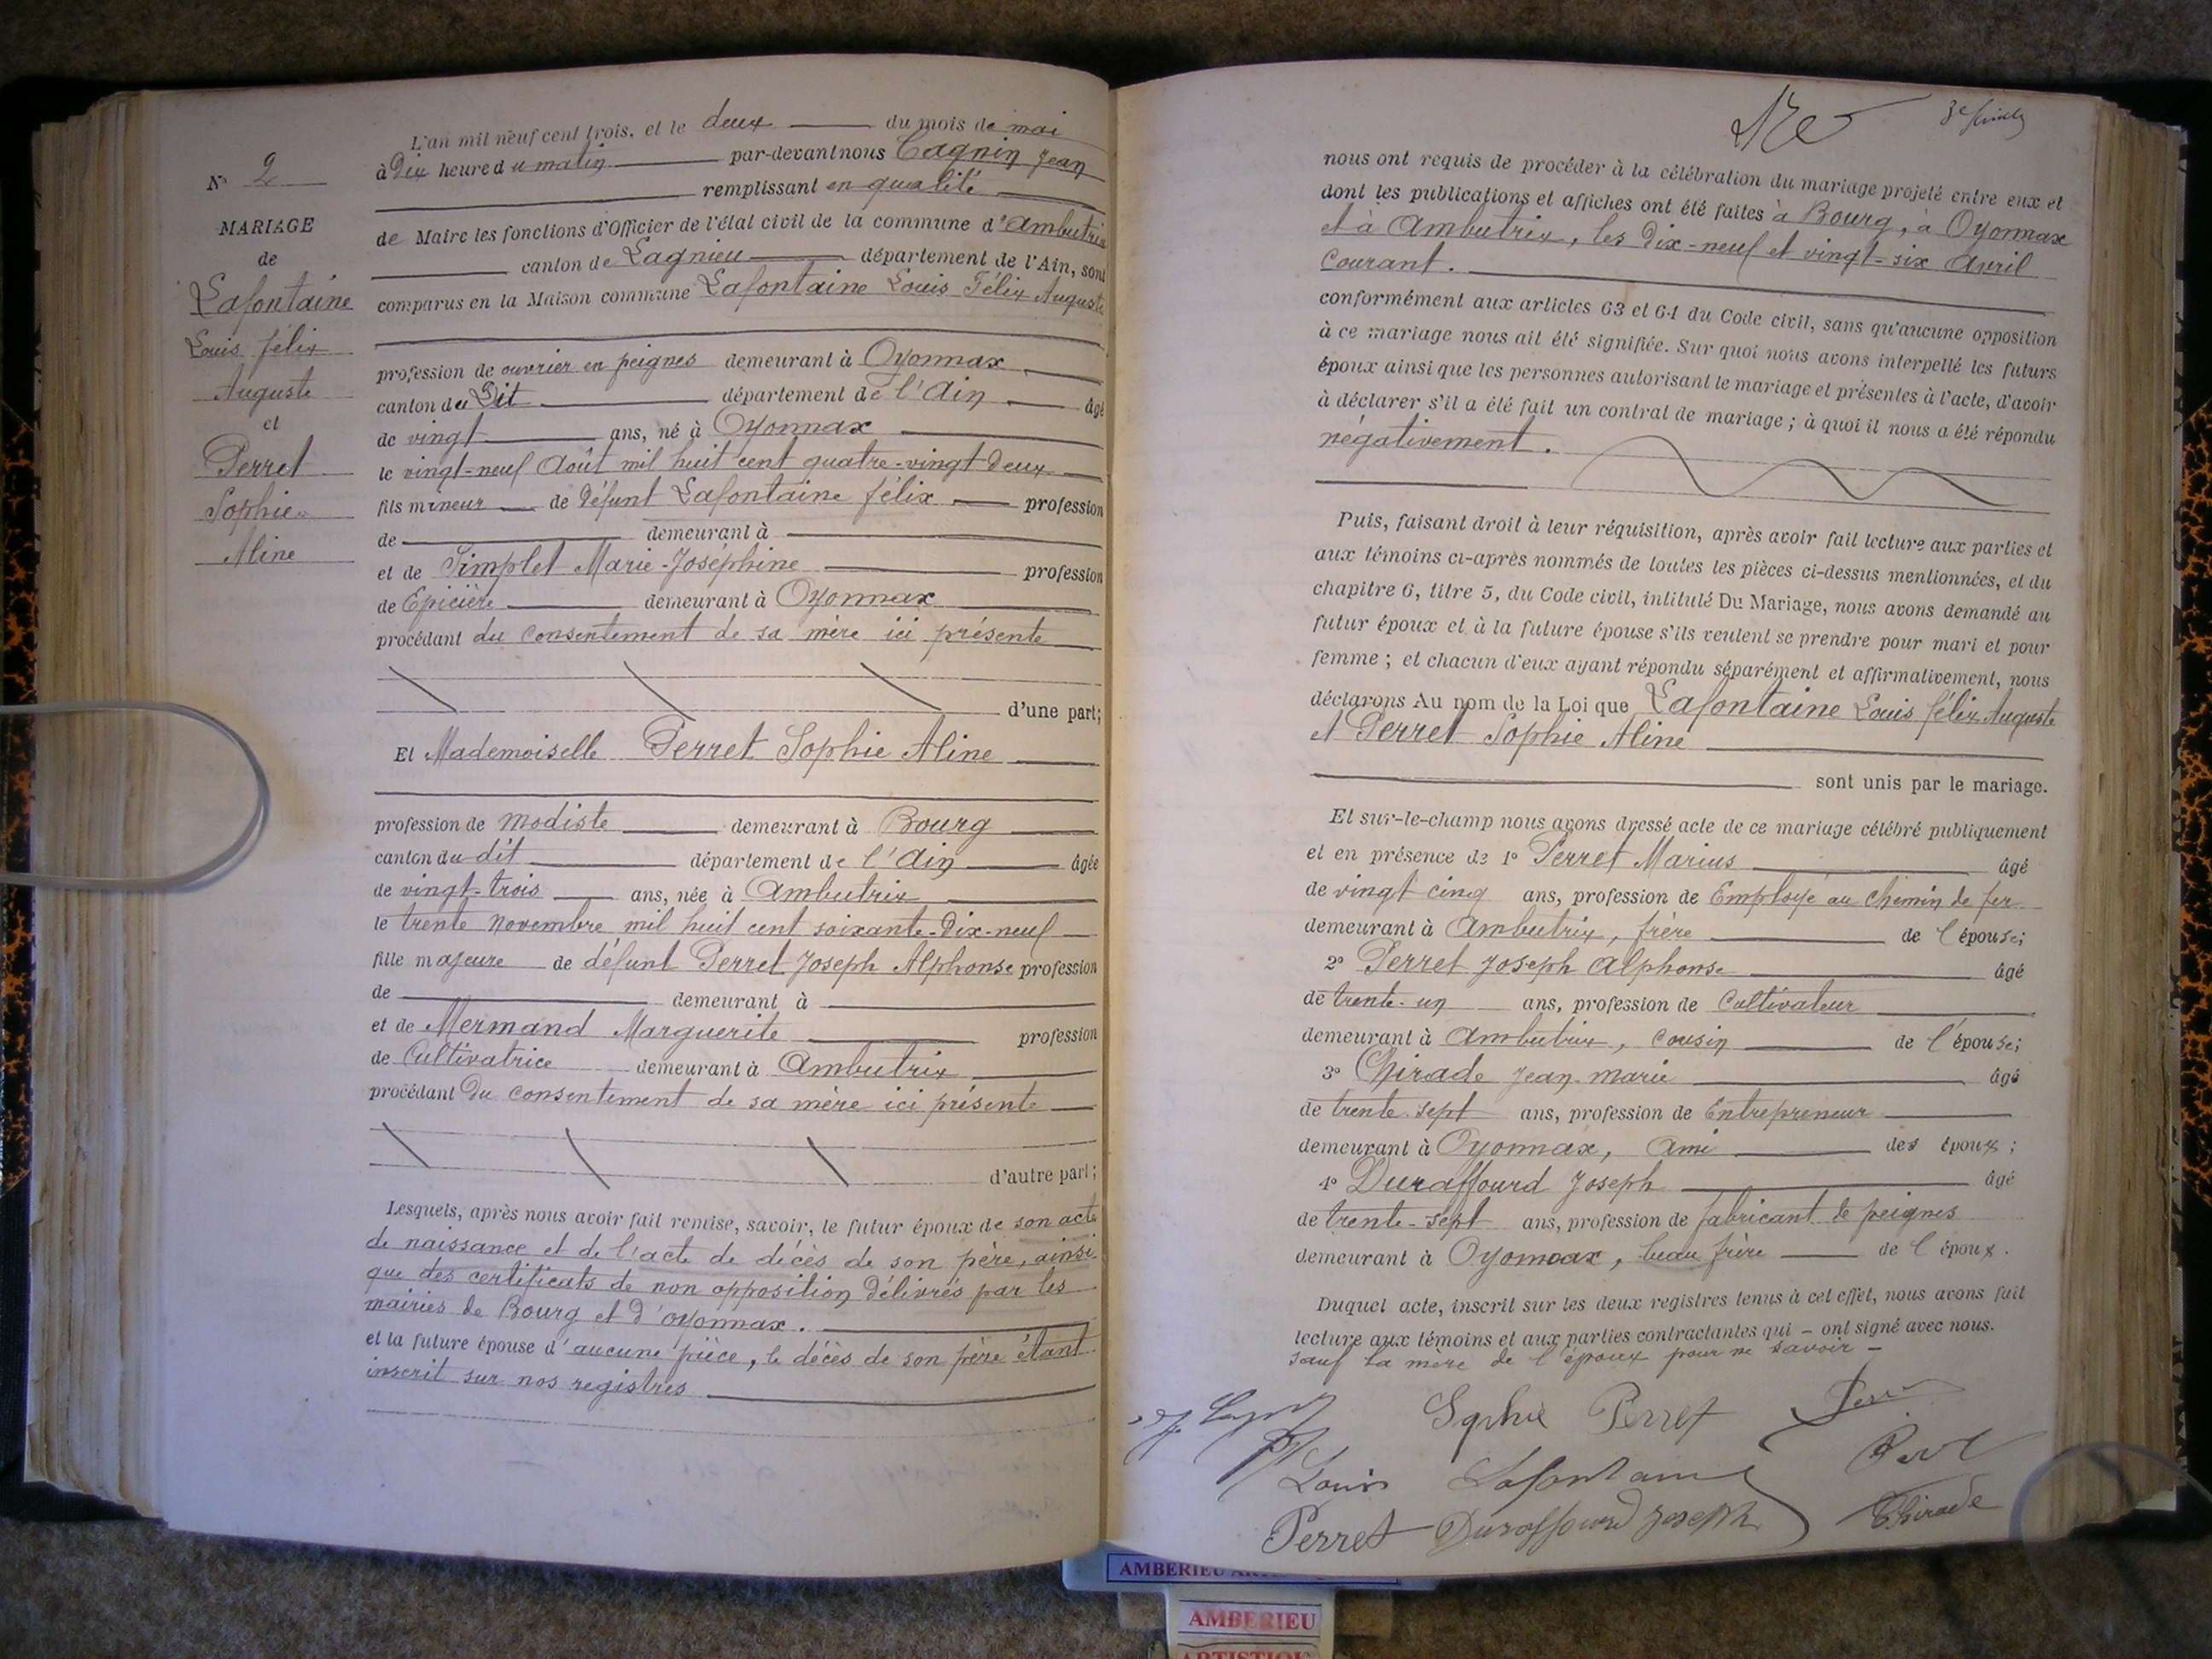 L'an mil neuf cent trois, et le deux du mois de mai
N° 2
à Dix heure du matin par-devant nous Cagnin Jean
remplissant en qualité
MARIAGE
de Maire les fonctions d'Officier de l'état civil de la commune d'Ambutrix
de
canton de Lagnieu département de l'Ain, sont
Lafontaine
comparus en la Maison commune Lafontaine Louis Félix Auguste
Louis félix
profession de ouvrier en peignes demeurant à Oyonnax
Auguste
canton du Dit département de l'Ain âgé
et
de vingt ans, né à Oyonnax
Perret
le vingt-neuf Août mil huit cent quatre-vingt Deux
Sophie
fils mineur de Défunt Lafontaine félix profession
de demeurant à
Aline
et de Simplet Marie-Joséphine profession
de Epicière demeurant à Oyonnax
procédant du consentement de sa mère ici présente
d'une part;
Et Mademoiselle Perret Sophie Aline
profession de modiste demeurant à Bourg
canton du dit département de l'Ain âgée
de vingt-trois ans, née à Ambutrix
le trente novembre mil huit cent soixante-Dix-neuf
fille majeure de défunt Perret Joseph Alphonse profession
de demeurant à
et de Mermand Marguerite profession
de Cultivatrice demeurant à Ambutrix
procédant Du consentement de sa mère ici présente
d'autre part;
Lesquels, après nous avoir fait remise, savoir, le futur époux de son acte
de naissance et de l'acte de décès de son père, ainsi
que des certificats de non opposition Délivrés par les
mairies de Bourg et d'oyonnax.
et la future épouse d'aucune pièce, le décès de son père étant
inscrit sur nos registres
nous ont requis de procéder à la célébration du mariage projeté entre eux et
dont les publications et affiches ont été faites à Bourg, à Oyonnax
et à Ambutrix, les Dix-neuf et vingt-six Avril
Courant.
conformément aux articles 63 et 64 du Code civil, sans qu'aucune opposition
à ce mariage nous ait été signifiée. Sur quoi nous avons interpellé les futurs
époux ainsi que les personnes autorisant le mariage et présentes à l'acte, d'avoir
à déclarer s'il a été fait un contrat de mariage; à quoi il nous a été répondu
négativement.
Puis, faisant droit à leur réquisition, après avoir fait lecture aux parties et
aux témoins ci-après nommés de toutes les pièces ci-dessus mentionnées, et du
chapitre 6, titre 5, du Code civil, intitulé Du Mariage, nous avons demandé au
futur époux et à la future épouse s'ils veulent se prendre pour mari et pour
femme; et chacun d'eux ayant répondu séparément et affirmativement, nous
déclarons Au nom de la Loi que Lafontaine Louis félix Auguste
et Perret Sophie Aline
sont unis par le mariage.
Et sur-le-champ nous avons dressé acte de ce mariage célébré publiquement
et en présence de 1° Perret Marius âgé
de vingt cinq ans, profession de Employé au chemin de fer
demeurant à Ambutrix, frère de l'épouse;
2° Perret Joseph Alphonse âgé
de trente-un ans, profession de Cultivateur
demeurant à Ambutrix, Cousin de l'épouse;
3° Chirade Jean-marie âgé
de trente-sept ans, profession de Entrepreneur
demeurant à Oyonnax, Ami des époux;
4° Duraffourd Joseph âgé
de trente-sept ans, profession de fabricant de peignes
demeurant à Oyonnax, beau frère de l'époux.
Duquel acte, inscrit sur les deux registres tenus à cet effet, nous avons fait
lecture aux témoins et aux parties contractantes qui – ont signé avec nous.
sauf la mère de l'époux pour ne savoir –
Sophie Perret
Louis Lafontaine
Perret Duraffourd Joseph Chirade
AMBERIEU
AMBERIEU